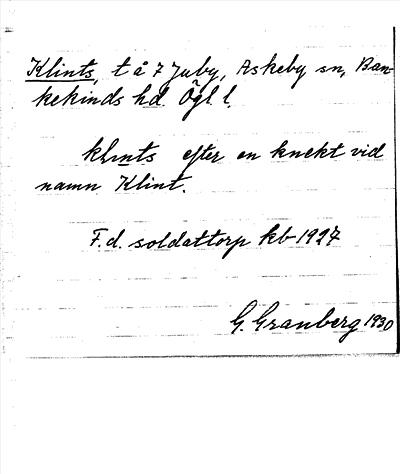 Klints, t å 7 Juby, Askeby sn, Ban-
kekinds hd. Ögl l.
klints efter en knekt vid
namn Klint.
F.d. soldattorp kb 1927
G. Granberg 1930